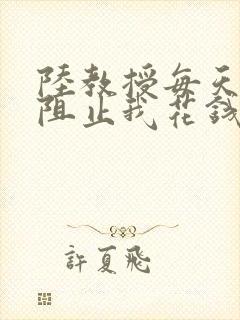 陸教授每天
阻止我花錢
許夏飛